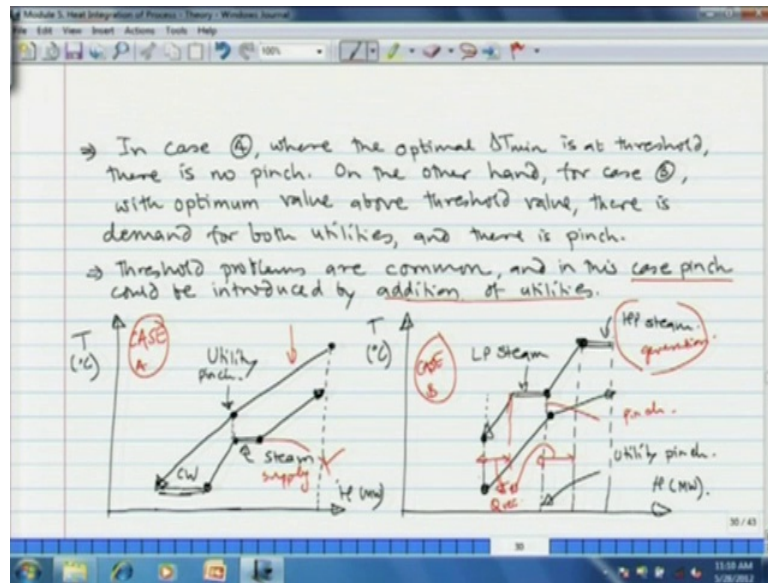 Module 5. Heat Integration of Process - Theory - Windows Journal
File Edit View Insert Actions Tools Help
100%
⇒ In case Ⓐ, where the optimal ΔTmin is at threshold,
there is no pinch. On the other hand, for case Ⓑ,
with optimum value above threshold value, there is
demand for both utilities, and there is pinch.
⇒ Threshold problems are common, and in this case pinch
could be introduced by addition of utilities.
T
(°C)
CASE
A
Utility
pinch.
CW
Steam
supply
H (MW)
T
(°C)
CASE
B
LP Steam
HP steam
generation
pinch.
Utility pinch.
Qrec
H (MW).
30 / 43
30
11:58 AM
5/28/2012